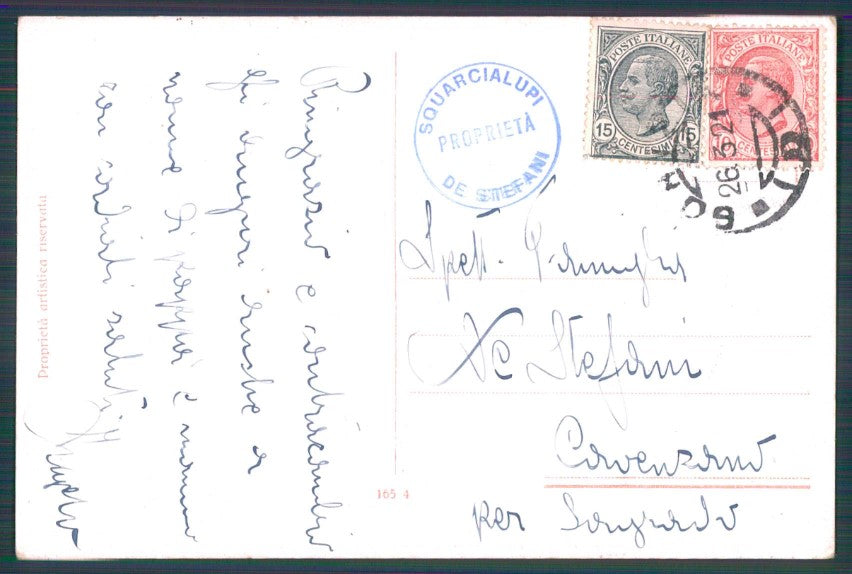 Ringrazio e contraccambio
gli auguri anche a
nome di pappà e mamma
con cordiali saluti
Proprietà artistica riservata
SQUARCIALUPI
PROPRIETÀ
DE STEFANI
POSTE ITALIANE
15 15
CENTESIMI
POSTE ITALIANE
CENTESIMI
26.3.21
Spett. Famiglia
De Stefani
Cavenzano
per Sagrado
165 4